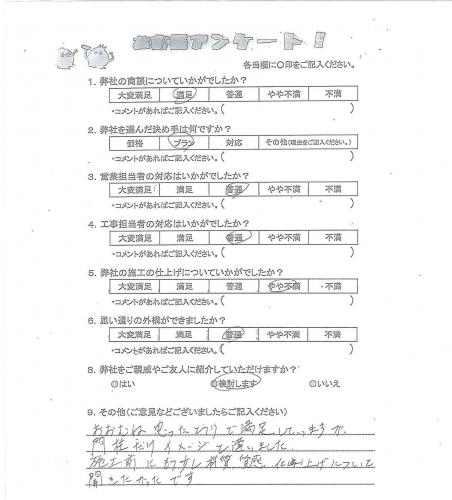 お客様アンケート!
各当欄に○印をご記入ください。
1. 弊社の商談についていかがでしたか?
大変満足 満足 普通 やや不満 不満
・コメントがあればご記入ください。( )
2. 弊社を選んだ決め手は何ですか?
価格 プラン 対応 その他(理由をご記入ください。)
・コメントがあればご記入ください。( )
3. 営業担当者の対応はいかがでしたか?
大変満足 満足 普通 やや不満 不満
・コメントがあればご記入ください。( )
4. 工事担当者の対応はいかがでしたか?
大変満足 満足 普通 やや不満 不満
・コメントがあればご記入ください。( )
5. 弊社の施工の仕上げについていかがでしたか?
大変満足 満足 普通 やや不満 不満
・コメントがあればご記入ください。( )
6. 思い通りの外構ができましたか?
大変満足 満足 普通 やや不満 不満
・コメントがあればご記入ください。( )
8. 弊社をご親戚やご友人に紹介していただけますか?
○はい ○検討します ○いいえ
9. その他(ご意見などございましたらご記入ください)
おおむね思ったとおりで満足していますが、
門柱だけイメージと違いました。
施工前にもう少し材質、質感、仕上げについて
聞きたかったです